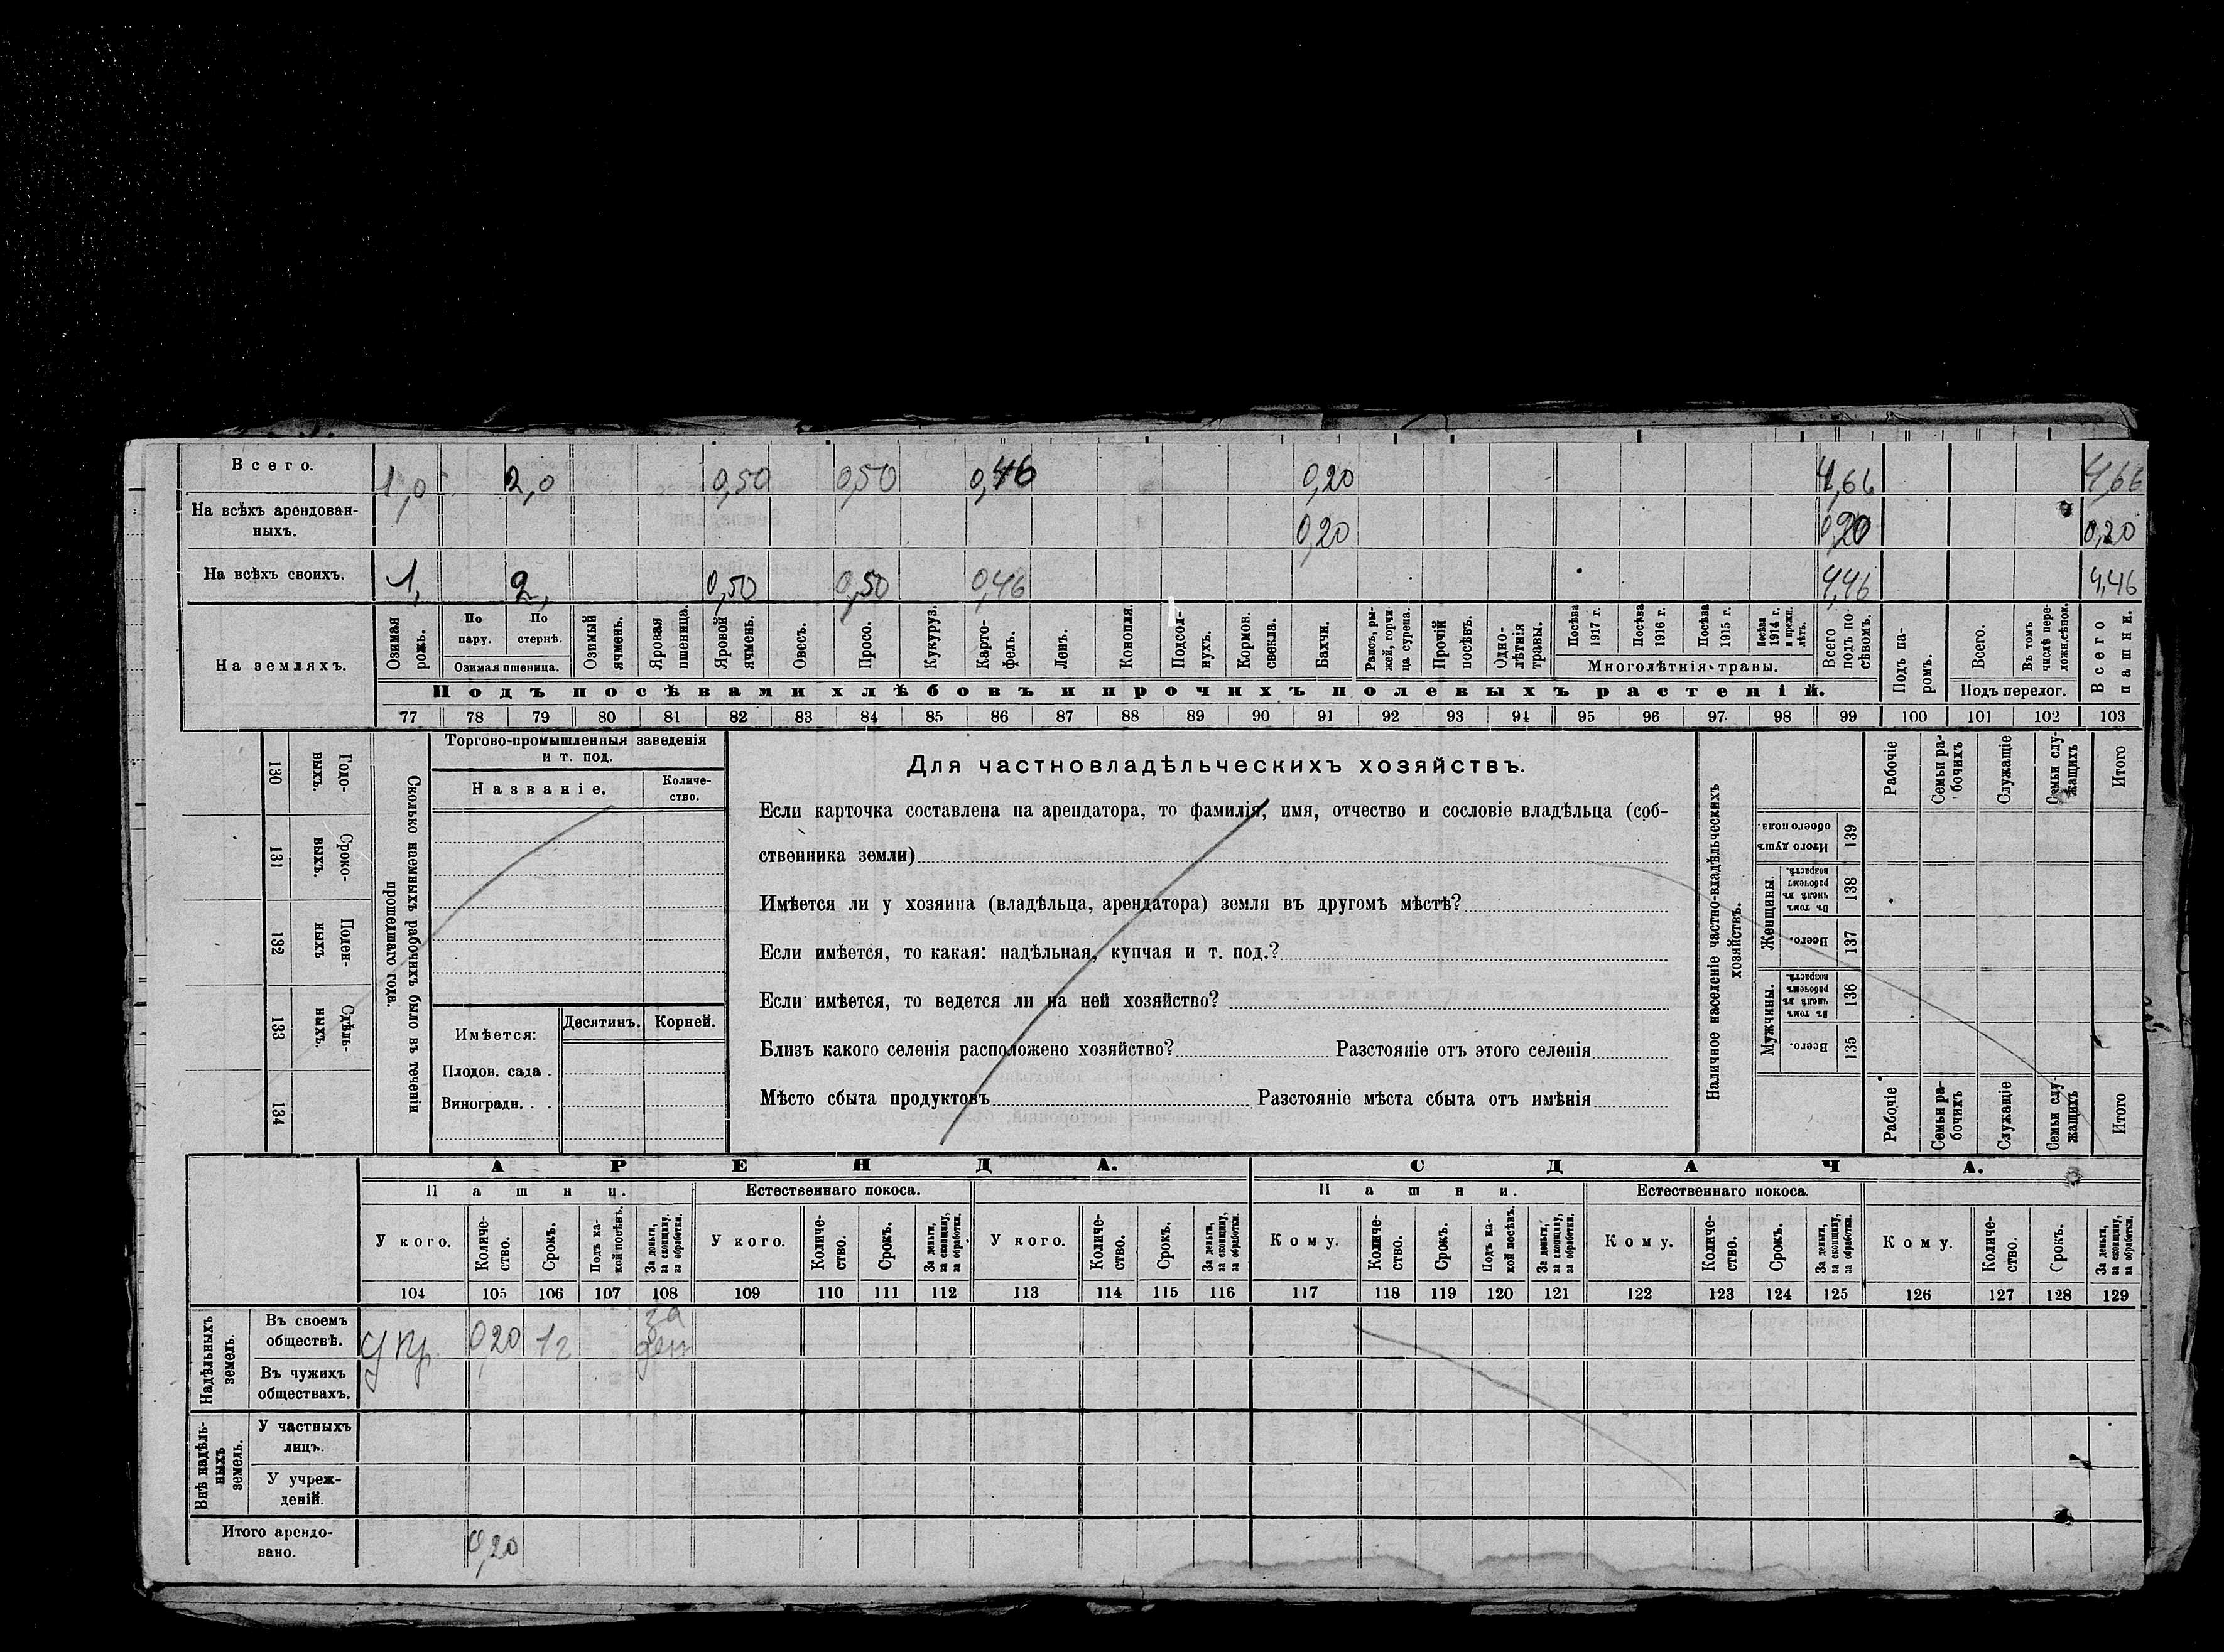 Всего. 1,0 2,0 0,50 0,50 0,46 0,20 4,66 4,66
На всѣхъ арендован-
ныхъ. 0,20 0,20 0,20
На всѣхъ своихъ. 1, 2, 0,50 0,50 0,46 4,46 4,46
На земляхъ.
Озимая рожь.
По пару.
По стернѣ.
Озимая пшеница.
Озимый ячмень.
Яровая пшеница.
Яровой ячмень.
Овесъ.
Просо.
Кукуруз.
Карто-
фель.
Ленъ.
Конопля.
Подсол-
нухъ.
Кормов. свекла.
Бахчи.
Рапсъ, ры-
жей, горчи-
ца сурепа.
Прочій посѣвъ.
Одно-
лѣтнія травы.
Посѣва 1917 г.
Посѣва 1916 г.
Посѣва 1915 г.
Посѣва 1914 г. и прежн. лѣтъ.
Многолѣтнія травы.
Всего подъ по-
сѣвомъ.
Подъ па-
ромъ.
Всего.
Въ томъ числѣ пере-
ложн.сѣнок.
Подъ перелог.
Всего пашни.
Подъ посѣвами хлѣбовъ и прочихъ полевыхъ растеній.
77 78 79 80 81 82 83 84 85 86 87 88 89 90 91 92 93 94 95 96 97 98 99 100 101 102 103
130 Годо-
выхъ.
131 Сроко-
выхъ.
132 Поден-
ныхъ
133 Сдѣль-
ныхъ.
134
Сколько наемныхъ рабочихъ было въ теченіи
прошедшаго года.
Торгово-промышленныя заведенія
и т. под.
Названіе.
Количе-
ство.
Имѣется: Десятинъ. Корней.
Плодов. сада .
Виноградн. . .
Для частновладѣльческихъ хозяйствъ.
Если карточка составлена на арендатора, то фамилія, имя, отчество и сословіе владѣльца (соб-
ственника земли)
Имѣется ли у хозяина (владѣльца, арендатора) земля въ другомъ мѣстѣ?
Если имѣется, то какая: надѣльная, купчая и т. под.?
Если имѣется, то ведется ли на ней хозяйство?
Близъ какого селенія расположено хозяйство? Разстояніе отъ этого селенія
Мѣсто сбыта продуктовъ Разстояніе мѣста сбыта отъ имѣнія
Наличное населеніе частно-владѣльческихъ
хозяйствъ.
Рабочіе
Семьи ра-
бочихъ
Служащіе
Семьи слу-
жащихъ
Итого
Итого душъ обоего пола. 139
Женщины.
Въ томъ числѣ въ рабочемъ возрастѣ. 138
Всего. 137
Мужчины.
Въ томъ числѣ въ рабочемъ возрастѣ. 136
Всего. 135
Рабочіе
Семьи ра-
бочихъ
Служащіе
Семьи слу-
жащихъ
Итого
АРЕНДА. СДАЧА.
Пашни. Естественнаго покоса. Пашни. Естественнаго покоса.
У кого.
Количе-
ство.
Срокъ.
Подъ ка-
кой посѣвъ.
За деньги, за скопщину, за обработки.
У кого.
Количе-
ство.
Срокъ.
За деньги, за скопщину, за обработки.
У кого.
Количе-
ство.
Срокъ.
За деньги, за скопщину, за обработки.
Кому.
Количе-
ство.
Срокъ.
Подъ ка-
кой посѣвъ.
За деньги, за скопщину, за обработки.
Кому.
Количе-
ство.
Срокъ.
За деньги, за скопщину, за обработки.
Кому.
Количе-
ство.
Срокъ.
За деньги, за скопщину, за обработки.
104 105 106 107 108 109 110 111 112 113 114 115 116 117 118 119 120 121 122 123 124 125 126 127 128 129
Надѣльныхъ земель.
Въ своемъ
обществѣ. 0,20 1 г за
ден
Въ чужихъ
обществахъ.
Внѣ надѣль-
ныхъ земель.
У частныхъ
лицъ.
У учреж-
деній.
Итого арендо-
вано. 0,20